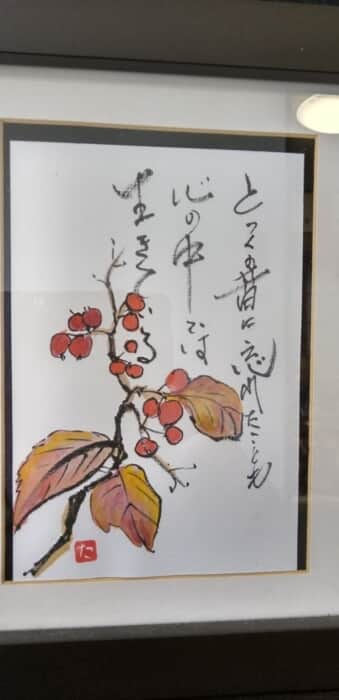 とっくの昔に忘れたことも
心の中では
生きている
た